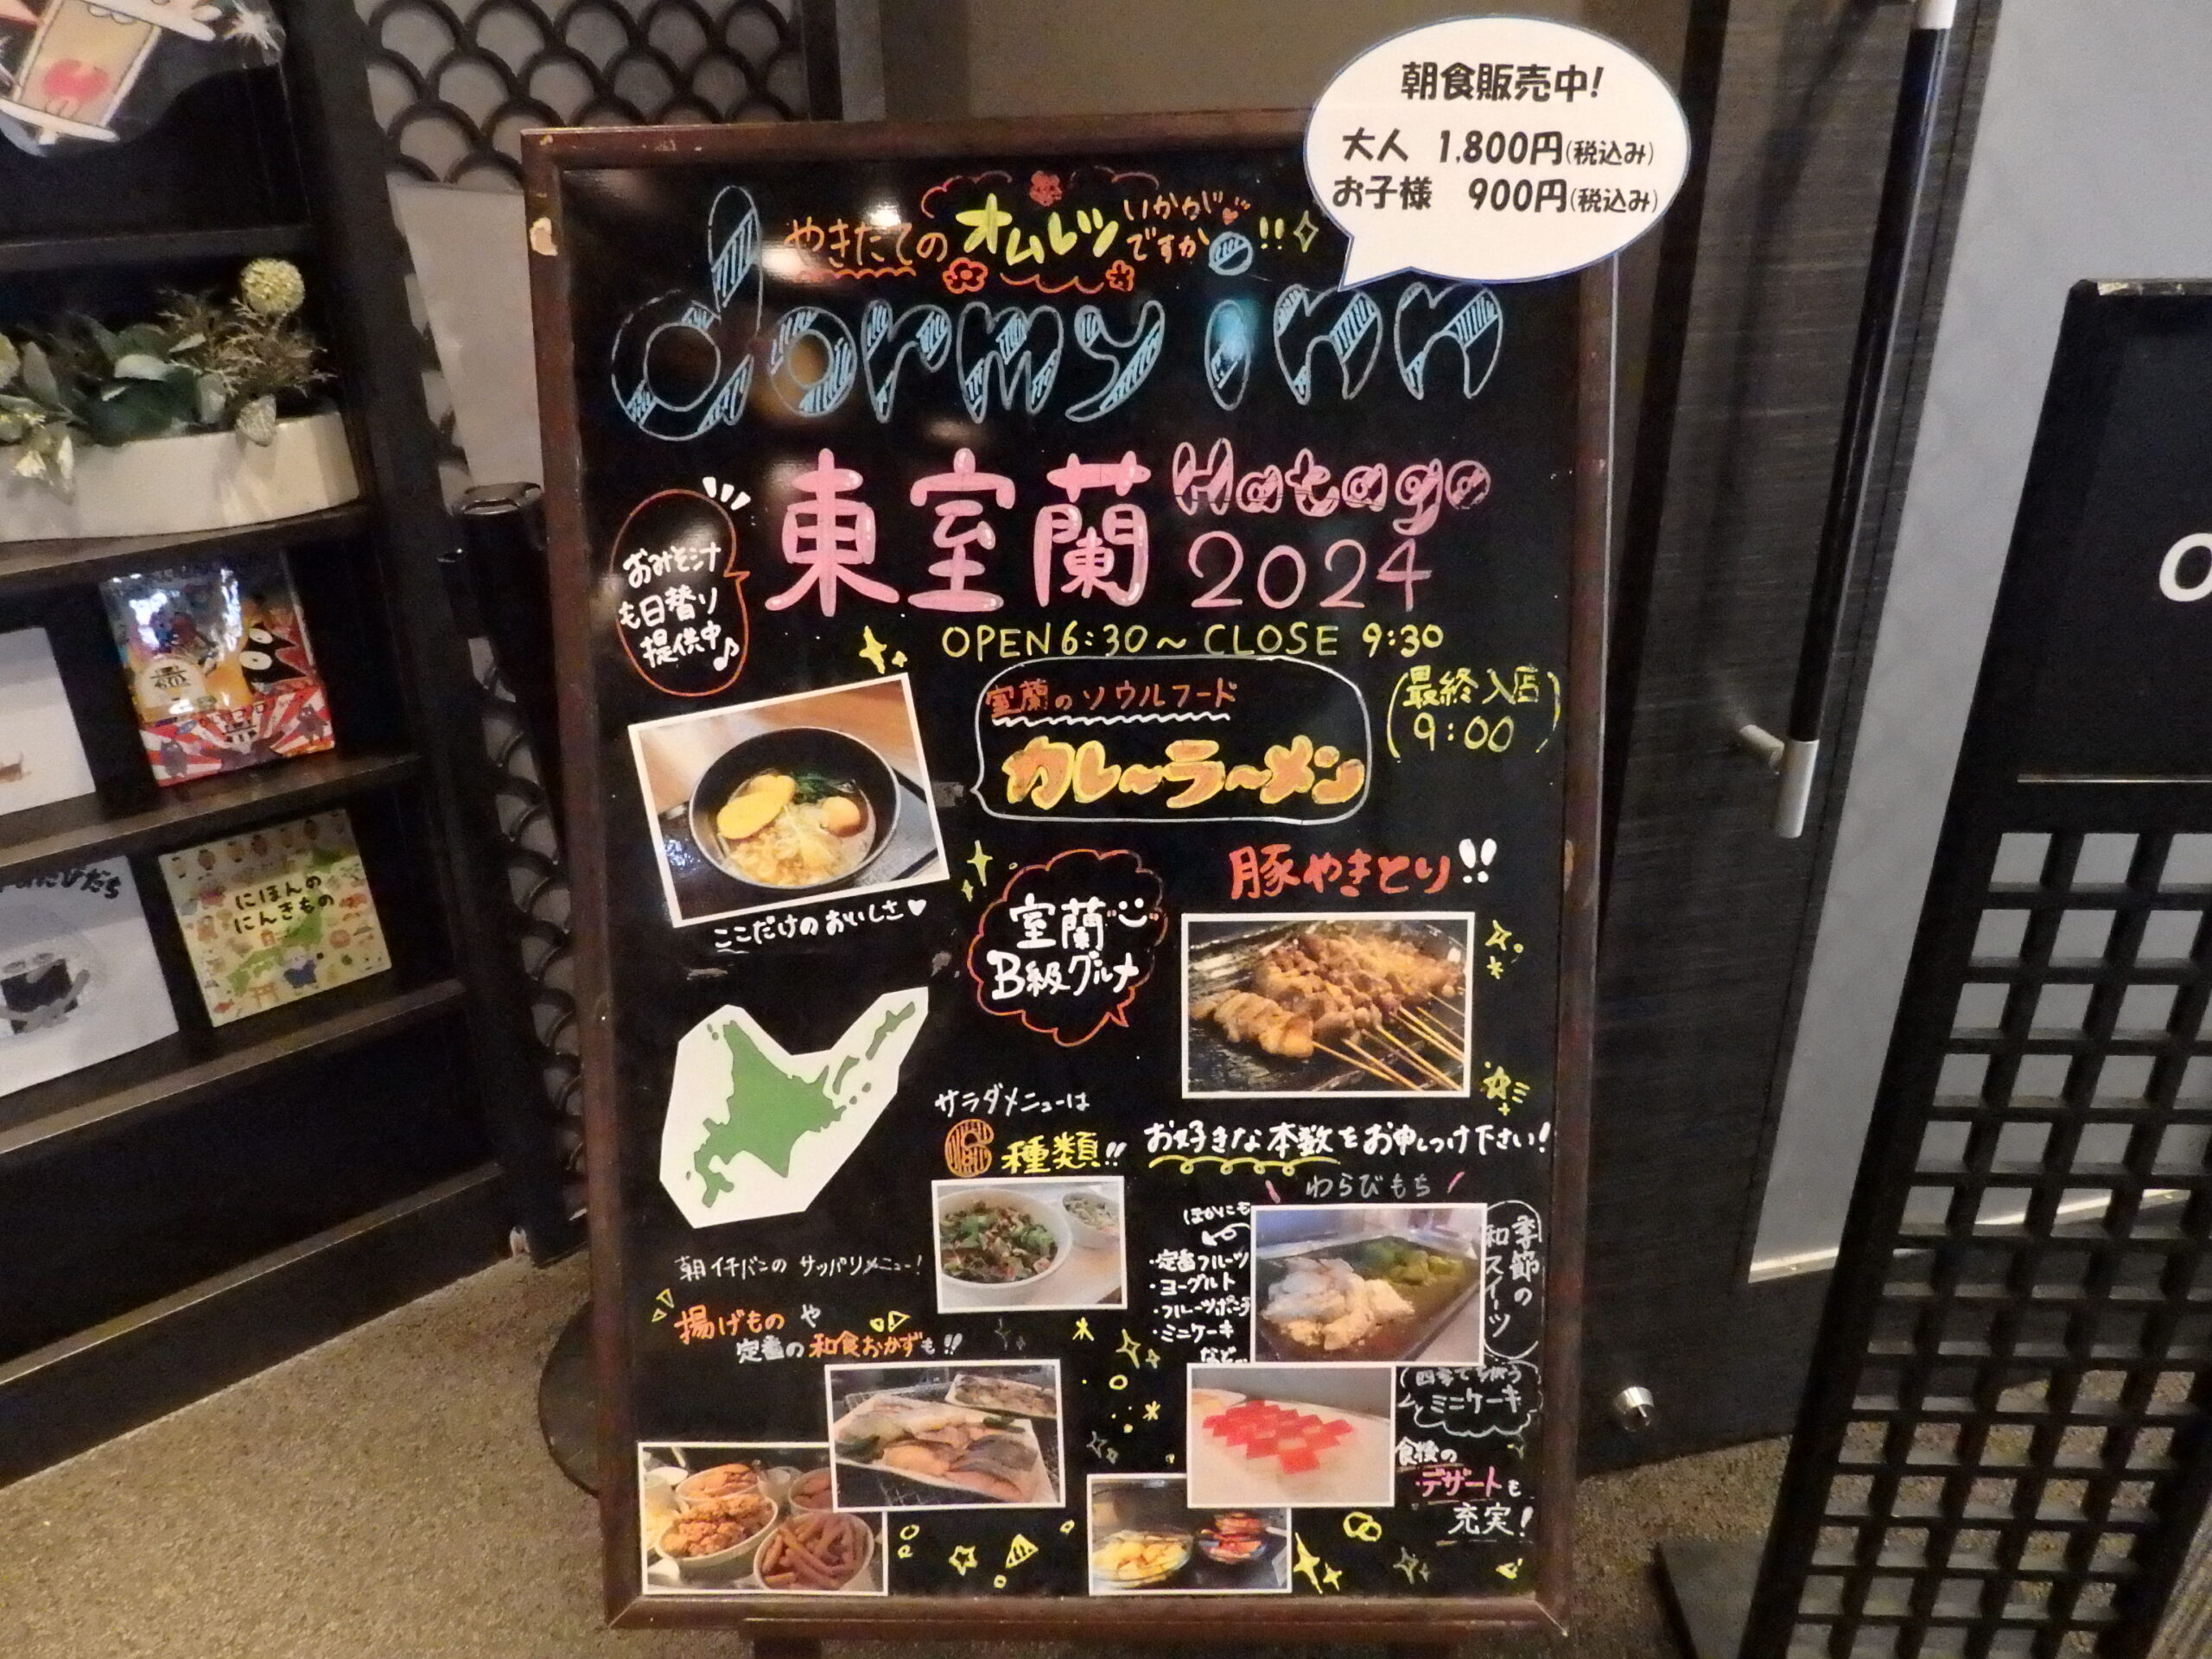 朝食販売中!
大人 1,800円(税込み)
お子様 900円(税込み)
やきたての オムレツ いかがですか!!
dormy inn
東室蘭 Hatago
2024
おみそ汁
も日替り
提供中♪
OPEN 6:30~CLOSE 9:30
(最終入店
9:00)
室蘭のソウルフード
カレーラーメン
ここだけのおいしさ♥
室蘭
B級グルメ
豚やきとり!!
お好きな本数をお申しつけ下さい!
サラダメニューは
6種類!!
朝イチバンの サッパリメニュー!
揚げものや
定番の和食おかずも!!
わらびもち
季節の
和スイーツ
ほかにも
・定番フルーツ
・ヨーグルト
・フルーツポンチ
・ミニケーキ
など…
ミニケーキ
食後の
デザートも
充実!
にほんの
にんきもの